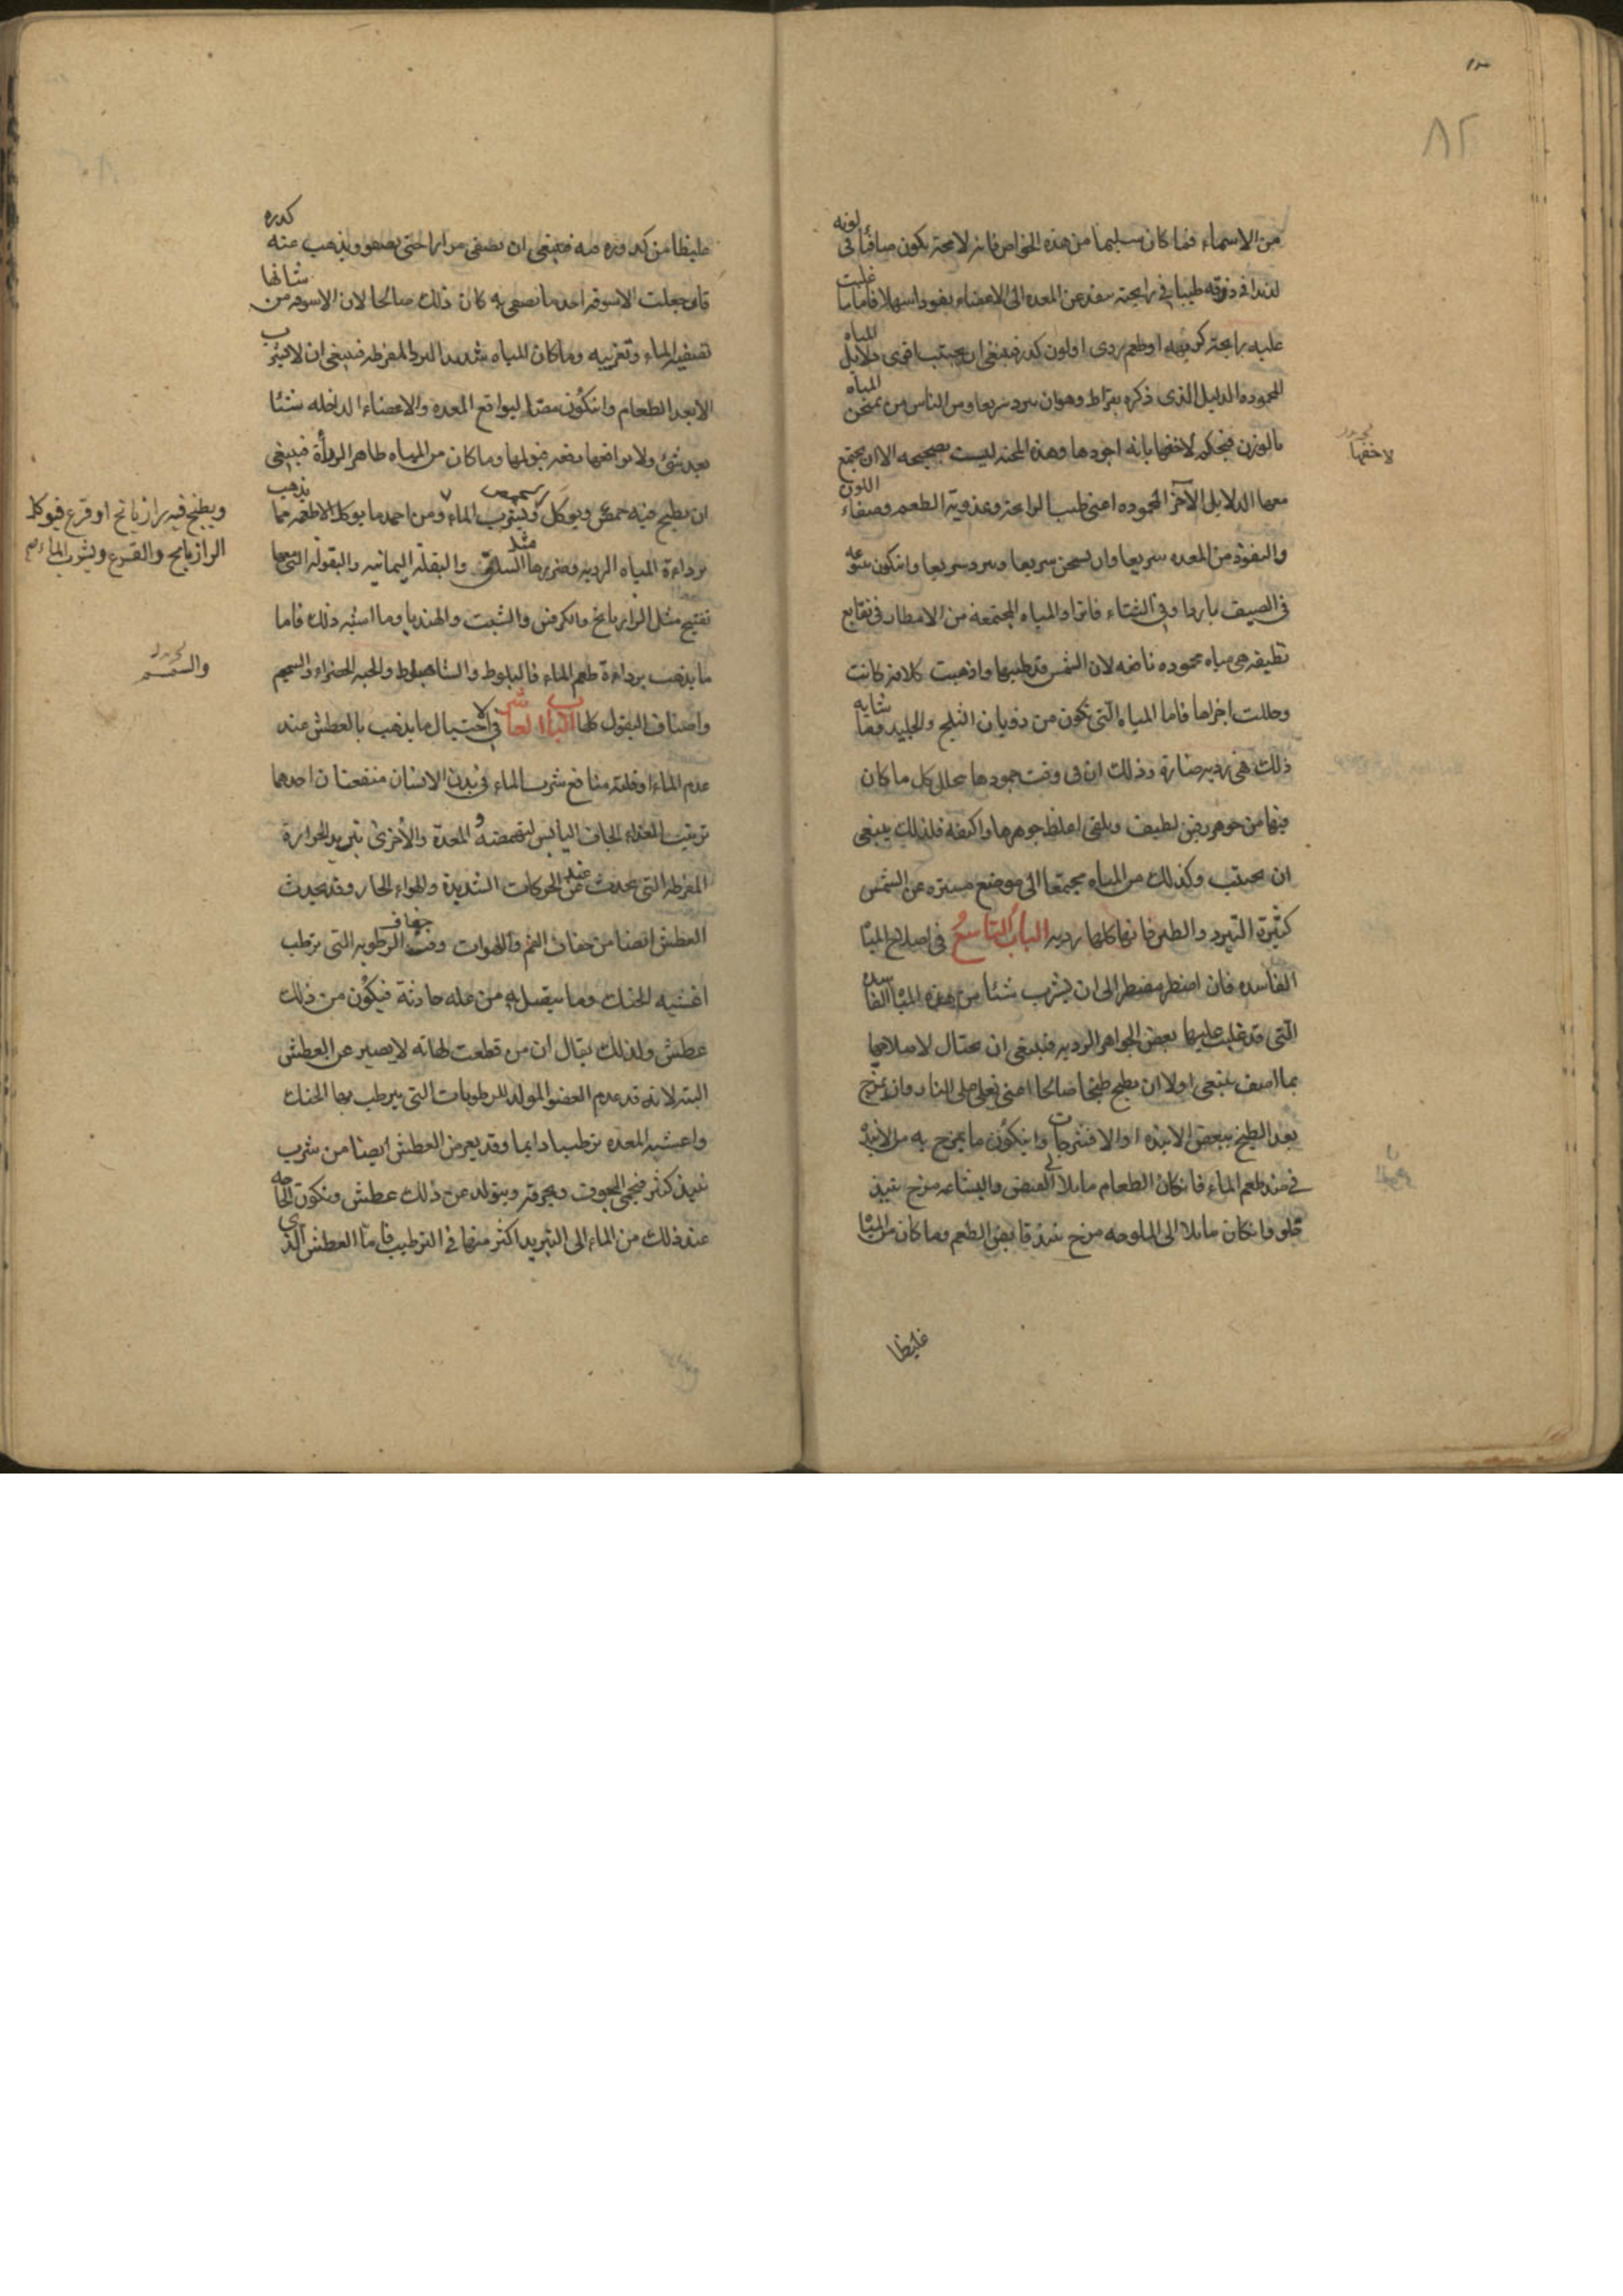 ٨٢
من الاسماء فما كان سليما من هذه الخواص فانه لا محة يكون صافيا فى لونه
لذيذا فى ذوقه طيبا فى رايحته ينفذ عن المعده الى الاعضاء نفوذا سهلا فاما ما غلبت
عليه رايحة كريهه او طعم ردى او لون كدر فينبغى ان يجتنب اقوى دلايل المياه
المحموده الدليل الذى ذكره بقراط وهو ان يبرد سريعا ومن الناس من يمتحن المياه
بالوزن فيحكم لاخفها بانه اجودها وهذه المحنه ليست بصحيحه الا ان يجتمع
لاخفها
معها الدلايل الآخر المحموده اعنى طيب الرايحة وعذوبة الطعم وصفاء اللون
والنفوذ من المعده سريعا وان يسخن سريعا ويبرد سريعا وان يكون
فى الصيف باردا وفى الشتاء فاترا والمياه المجتمعه من الامطار فى نقايع
نظيفه هى مياه محموده نافعه لان الشمس قد طبتها واذهبت كلاما كانت
وحللت اجزاها فاما المياه التى تكون من ذوبان الثلج والجليد وما شابه
ذلك فهى رديه ضارة وذلك ان فى وقت جمودها يتحلل كل ما كان
فيها من جوهر رقيق لطيف ويلقى اغلظ جوهرها واكثفه فلذلك ينبغى
ان يجتنب وكذلك من المياه مجتمعا الى موضع مستتره عن الشمس
كثيرة البرد والطين فانها كلها رديه الباب التاسع فى اصلاح الميا
الفاسده فان اضطر مضطر الى ان يشرب شيئا من هذه الميا الفاسده
التى قد غلبت عليها بعض الجواهر الرديه فينبغى ان يحتال لاصلاحها
بما اصف ينبغى اولا ان يطبخ طبخا صالحا اعنى يغلى على النار وان يمزج
بعد الطبخ ببعض الانبذه او الافشرجات وان يكون ما يمزج به من الانبذه
فى ضد طعم الماء فان كان الطعام مايلا الى العفص والبشاعه مزج بنبيذ
حلو وان كان مايلا الى الملوحه مزج بنبيذ قابض الطعم وما كان من الميا
غليظا
غليظا من كدوره فيه فينبغى ان يصفى مرارا حتى يصفو ويذهب عنه كدره
فان جعلت الاسوقه احد ما تصفى به كان ذلك صالحا لان الاسوقه من شانها
تصفيه الماء وتعذيبه وما كان المياه شديدا البرد المفرطه فينبغى ان لا يشرب
الا بعد الطعام وان يكون مصا ليوافع المعده والاعضاء الداخله شيئا
بعد شئ ولا يوافعها دفعه فيولها وما كان من المياه ظاهر الردأة فينبغى
ان يطبخ فيه حمص ويوكل ويشرب الماء ومن احمد ما يوكل الاطعمه مما يذهب
ويطبخ فيه رازيانج او قرع فيوكل
الرازيانج والقرع ويشرب الماء
برداءة المياه الرديه وضررها مثل السلق والبقلة اليمانيه والبقوله التى معها
تفتيح مثل الرازيانج والكرفس والشبت والهندبا وما اشبه ذلك فاما
ما يذهب برداءة طعم الماء فالبلوط والشاهبلوط والحبه الخضراء والسمسم
والسمسم
واصناف البقول كلها الباب العاشر فى الاحتيال ما يذهب بالعطش عند
عدم الماء او قلته منافع شرب الماء فى بدن الانسان منفعتان احدهما
ترتيب الغذاء الجاف اليابس لتهضمه المعدة والأخرى تبريد الحرارة
المفرطه التى تحدث عند الحركات الشديدة والهواء الحار وقد يحدث
العطش ايضا من جفاف الفم واللهوات وقت جفاف الرطوبه التى ترطب
اغشيه الحنك وما يتصل به من علة حادثة فيكون من ذلك
عطش ولذلك يقال ان من قطعت لهاته لا يصبر عن العطش
البته لانه قد عدم العضو المولد للرطوبات التى يرطب بها الحنك
واغشيه المعده ترطيبا دايما وقد يعرض العطش ايضا من شرب
نبيذ كثير فيحمى الجوف ويحرقه ويتولد عن ذلك عطش وتكون الحاجه
عند ذلك من الماء الى التبريد اكثر منها فى الترطيب فاما العطش الذى